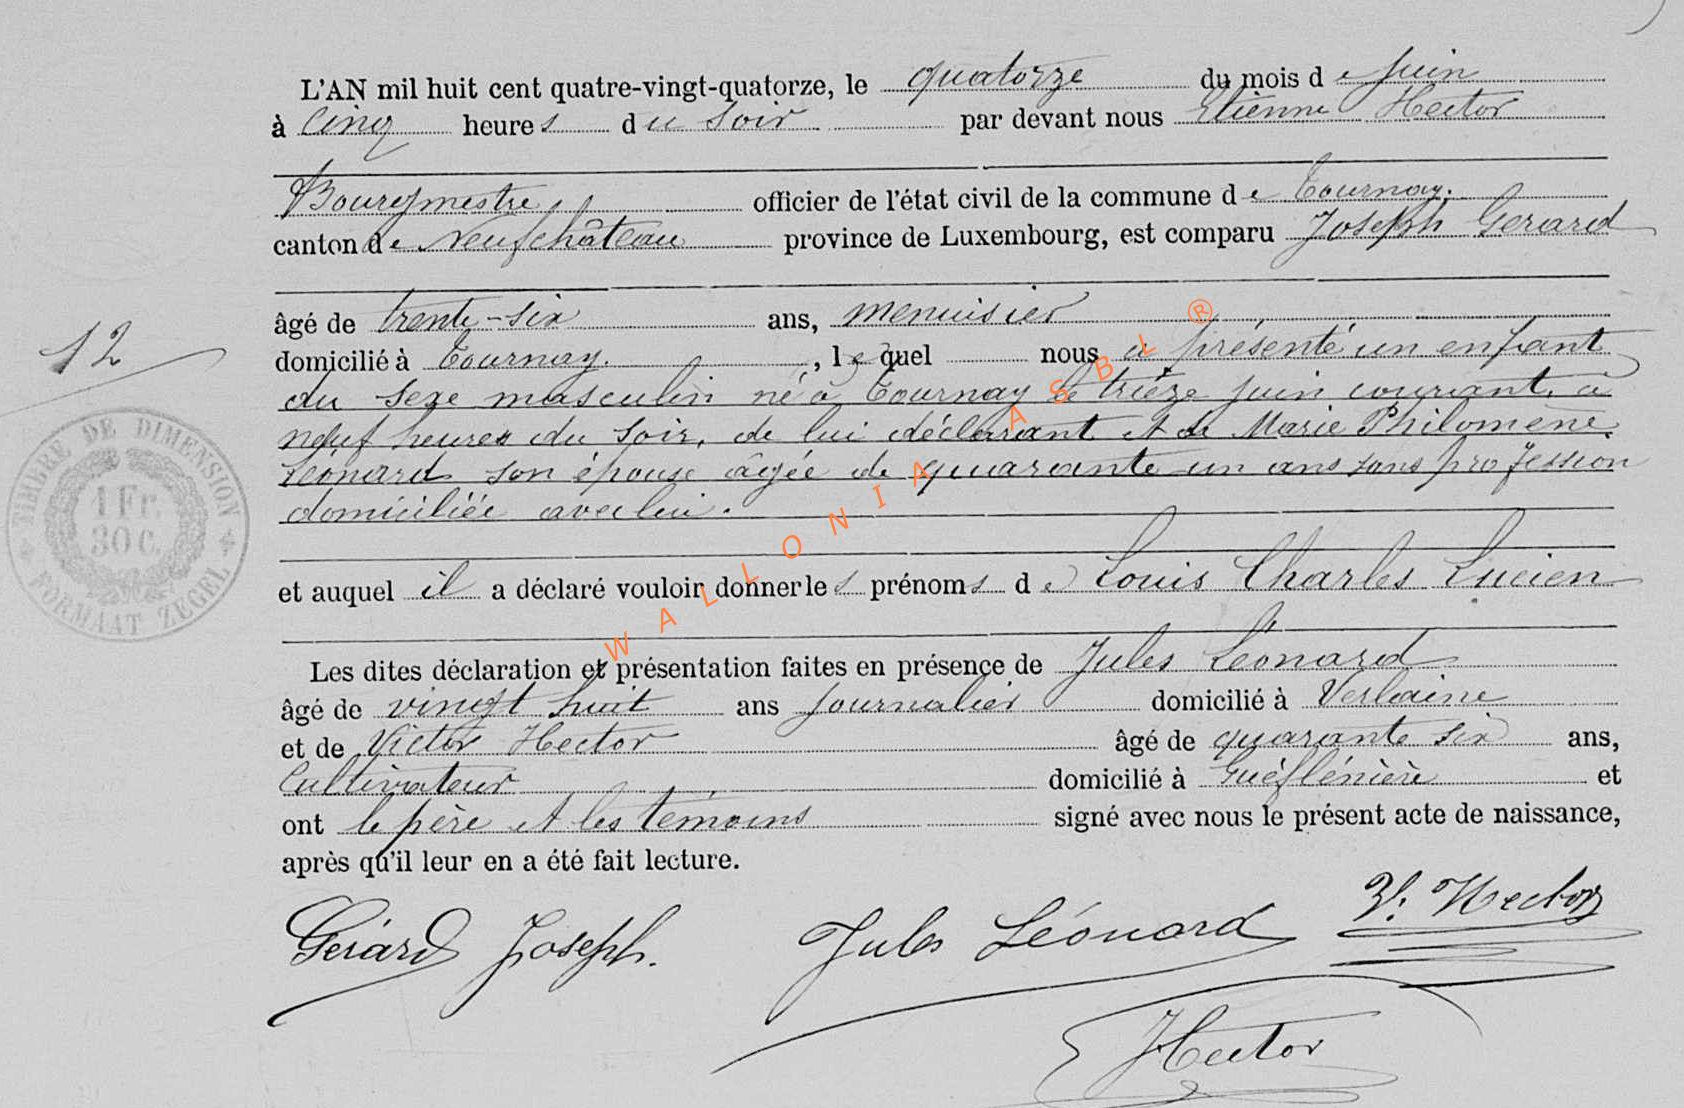 L'AN mil huit cent quatre-vingt-quatorze, le quatorze du mois de Juin
à Cinq heures du Soir par devant nous Etienne Hector
Bourgmestre officier de l'état civil de la commune de Tournay.
canton de Neufchâteau province de Luxembourg, est comparu Joseph Gerard
âgé de trente-six ans, menuisier
12
domicilié à Tournay. , lequel nous a présenté un enfant
du sexe masculin né à Tournay le trieze juin courant, à
neuf heures du soir, de lui déclarant et de Marie Philomène
Léonard son épouse âgée de quarante un ans sans profession
domiciliée avec lui.
et auquel il a déclaré vouloir donner les prénoms de Louis Charles Lucien
Les dites déclaration et présentation faites en présence de Jules Léonard
âgé de vingt huit ans journalier domicilié à Verlaine
et de Victor Hector âgé de quarante six ans,
Cultivateur domicilié à et
ont le père et les témoins signé avec nous le présent acte de naissance,
après qu'il leur en a été fait lecture.
Gérard Joseph. Jules Léonard V. Hector
Hector
TIMBRE DE DIMENSION
1 Fr.
30 C.
FORMAAT ZEGEL
WALLONIA ASBL ®